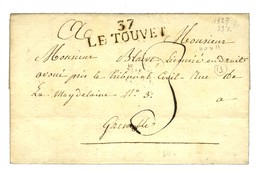 37
LE TOUVET
Monsieur
Monsieur Licencié en droit
avoué près le tribunal Civil Rue de
La Magdelaine N° 5.
a
Grenoble